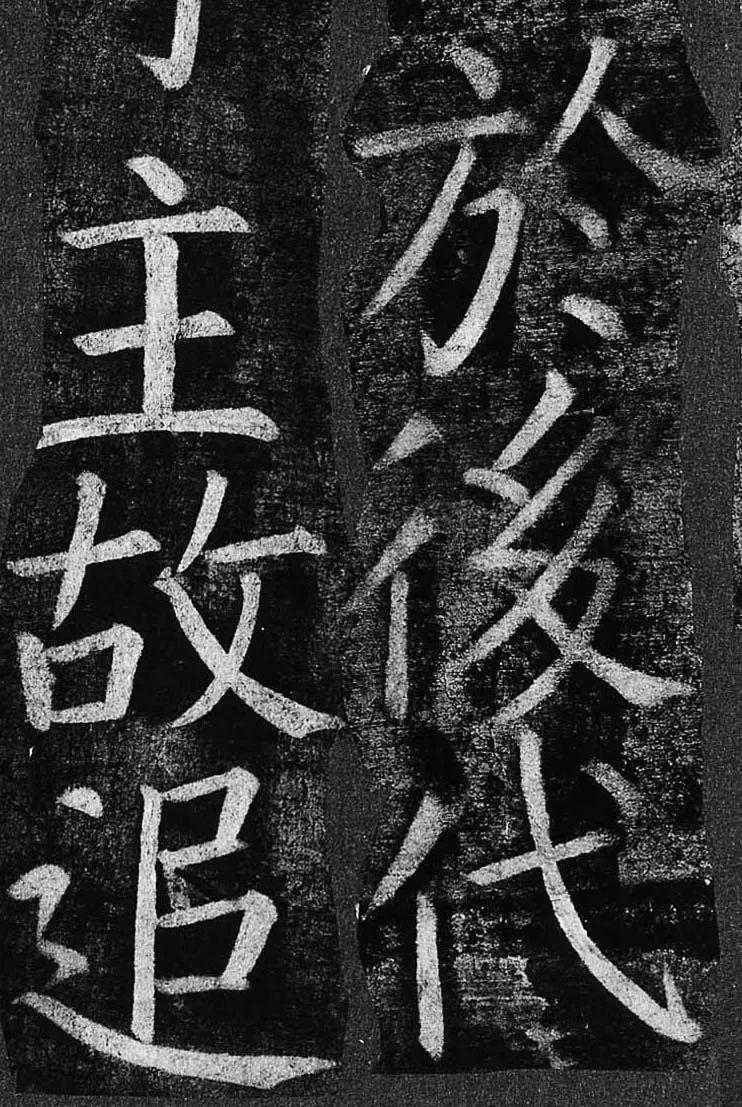 於後代
主故追